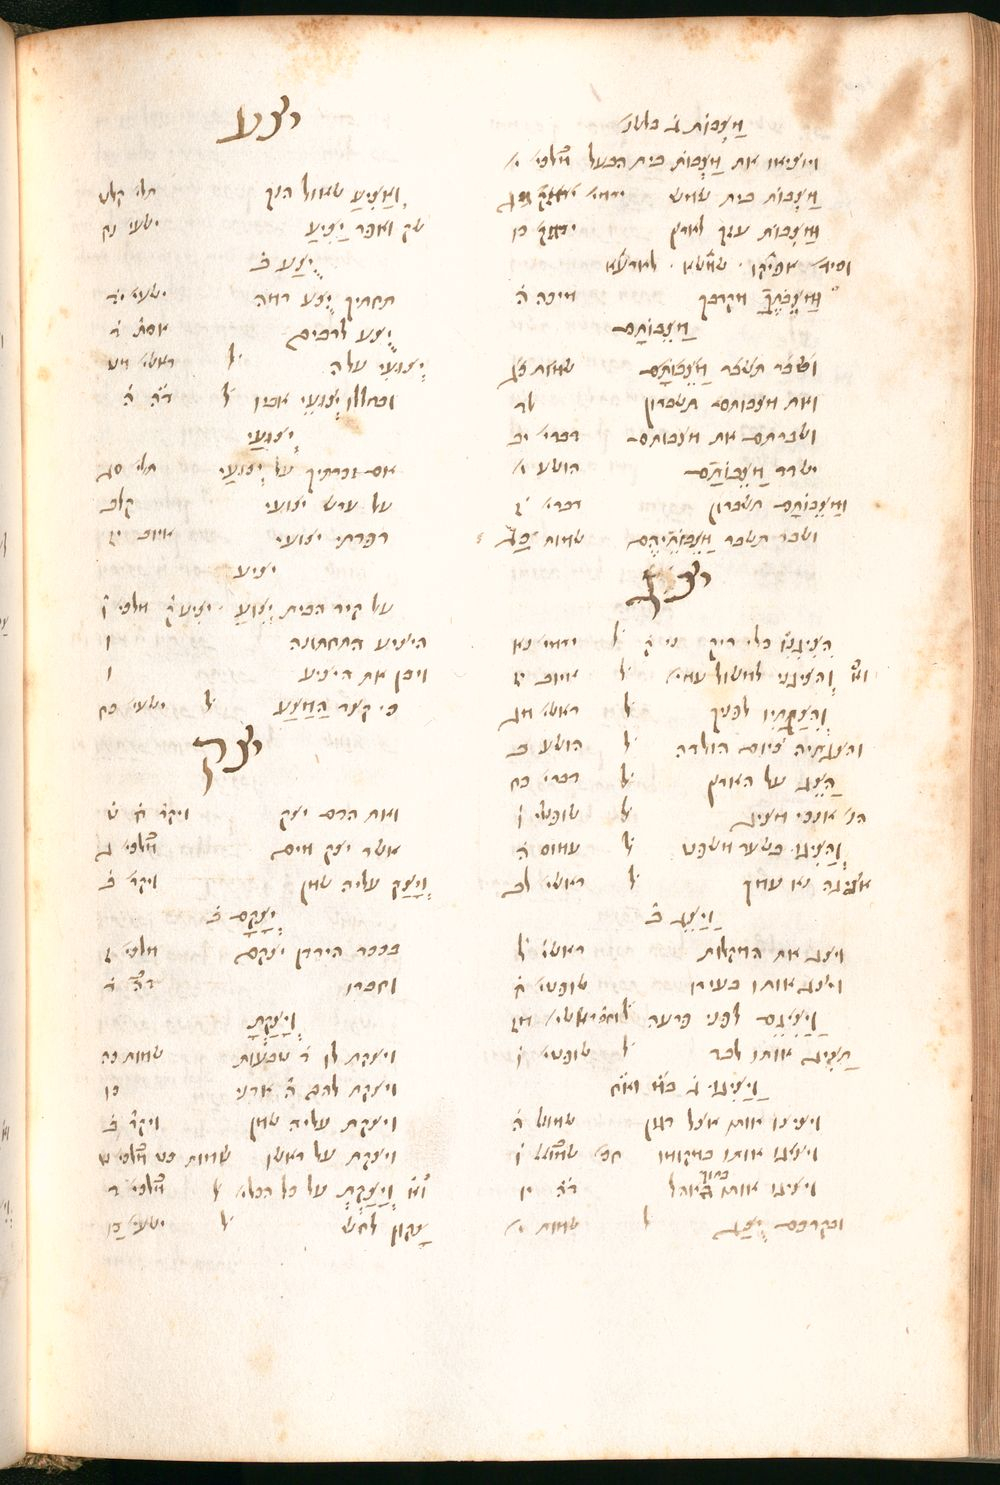 מַצְבוֹת ב̇ בלשׁנ̇
ויוציאו את מַצְבוֹת בית הבעל מלכי׳ י׳
מַצְבוֹת בית שמש ירמי׳
וּמַצֵבוֹת עוזך לארץ כו
וסי׳
וּמַצֵבֹתֶךָ מקרבך מיכה ה̇
מַצֵבוֹתָם
ושבר תשבר מַצֵבוֹתָם שמות כג
ואת מצבותם תשברון לד
ושברתם את מצבותם דברי׳ יב
ישדד מַצֵבוֹתָם הושע י׳
וּמַצֵבוֹתָם תשברון דברי׳ ז̇
ושבר תשבר מַצֵבוֹתֵיהֶם שמות כג
יצג
הִצִיגַנִי כלי ריק ל̇ ירמי׳ נא
וא̇ וְהִצִיגַנִי למשול עמי׳ ל̇ איוב יז
וְהִצַגְתִיו לפניך ל̇ ראשי׳ מג
והצגתיה כיום הולדה ל̇ הושע ב
הַצֵג על הארץ ל̇ דברי׳ כח
הנ׳ אנכי מציג ל̇ שופטי׳ ו̇
וְהַצִיגוּ בשער משפט ל̇ עמוס ה̇
אציגה נא עמך ל̇ ראשי׳ לג
וַיַצֵג ב̇
ויצג את המקלות ראשי׳ ל̇
ויצג אותו בעירו שופטי׳ ח̇
וַיַצִיגֵם לפני פרעה ל̇ ראשי׳ מז
תַצִיג אותו לבד ל̇ שופטי׳ ז̇
וַיַצִיגוּ ג̇
ויציגו אותו אצל דגון שמואל ה̇
ויציגו אותו במקומו שמואל ו̇
ויציגו אותו בתוך האהל ד״ה יו
ובקרכם יֻצַג ל̇ שמות י׳
יצע
וְאַצִיעַ שאול הנך תלי׳ קלט
שק ואפר יַצִיעַ ישעי׳ נח
יֻצַע ב̇
תחתיך יֻצַע רמה ישעי׳ יד
יֻצַע לרבים אסת̇ ד̇
יְצוּעִי עלה ל̇ ראשי׳ מט
ובחללו יְצוּעֵי אביו ל̇ ד״ה ה̇
יְצוּעָי
אם זכרתיך על יְצוּעָי תלי׳ סג
על ערש יצועי קלב
רפדתי יצועי איוב יז
יציע
על קיר הבית יצוע יציע ק̇ מלכי׳ ו̇
היציע התחתונה ו
ויבן את היציע ו
כי קצר הַמַצָע ל̇ ישעי׳ כח
יצק
ואת הדם יצק ויקר̇ ח̇ ט̇
אשר יצק מים מלכי׳ ג
וְיָצַק עליה שמן ויקר̇ ב̇
יְצָקָם ב̇
בככר הירדן יצקם מלכי׳ ז
וחברו ד״ה ד̇
וְיָצַקְתָ
ויצקת לו ד̇ טבעות שמות כה
ויצקת להם ה̇ אדני כו
ויצקת עליה שמן ויקר̇ ב̇
ויצקת על ראשו שמות כט מלכי׳ ט
וא̇ וְיָצַקְתְ על כל הכלי׳ ל̇ מלכי׳ ד
צָקוּן לחש ל̇ ישעי׳ כו